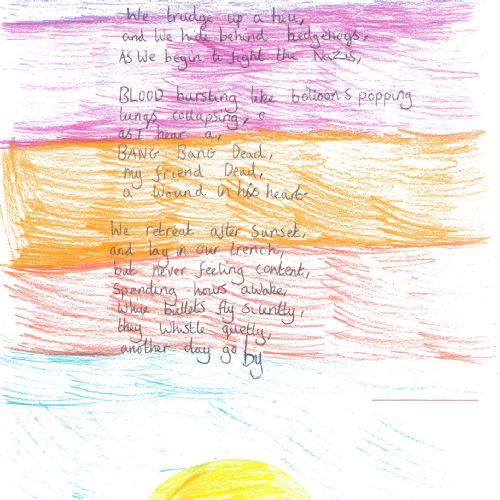 We trudge up a hill,
and we hide behind hedgehogs,
As we begin to fight the Nazis,
BLOOD bursting like balloons popping
lungs collapsing,
as I hear a,
BANG BANG Dead,
my friend Dead,
a wound in his heart.
We retreat after Sunset,
and lay in our trench,
but never feeling content,
spending hours awake,
While bullets fly silently,
they whistle quietly,
another day go by